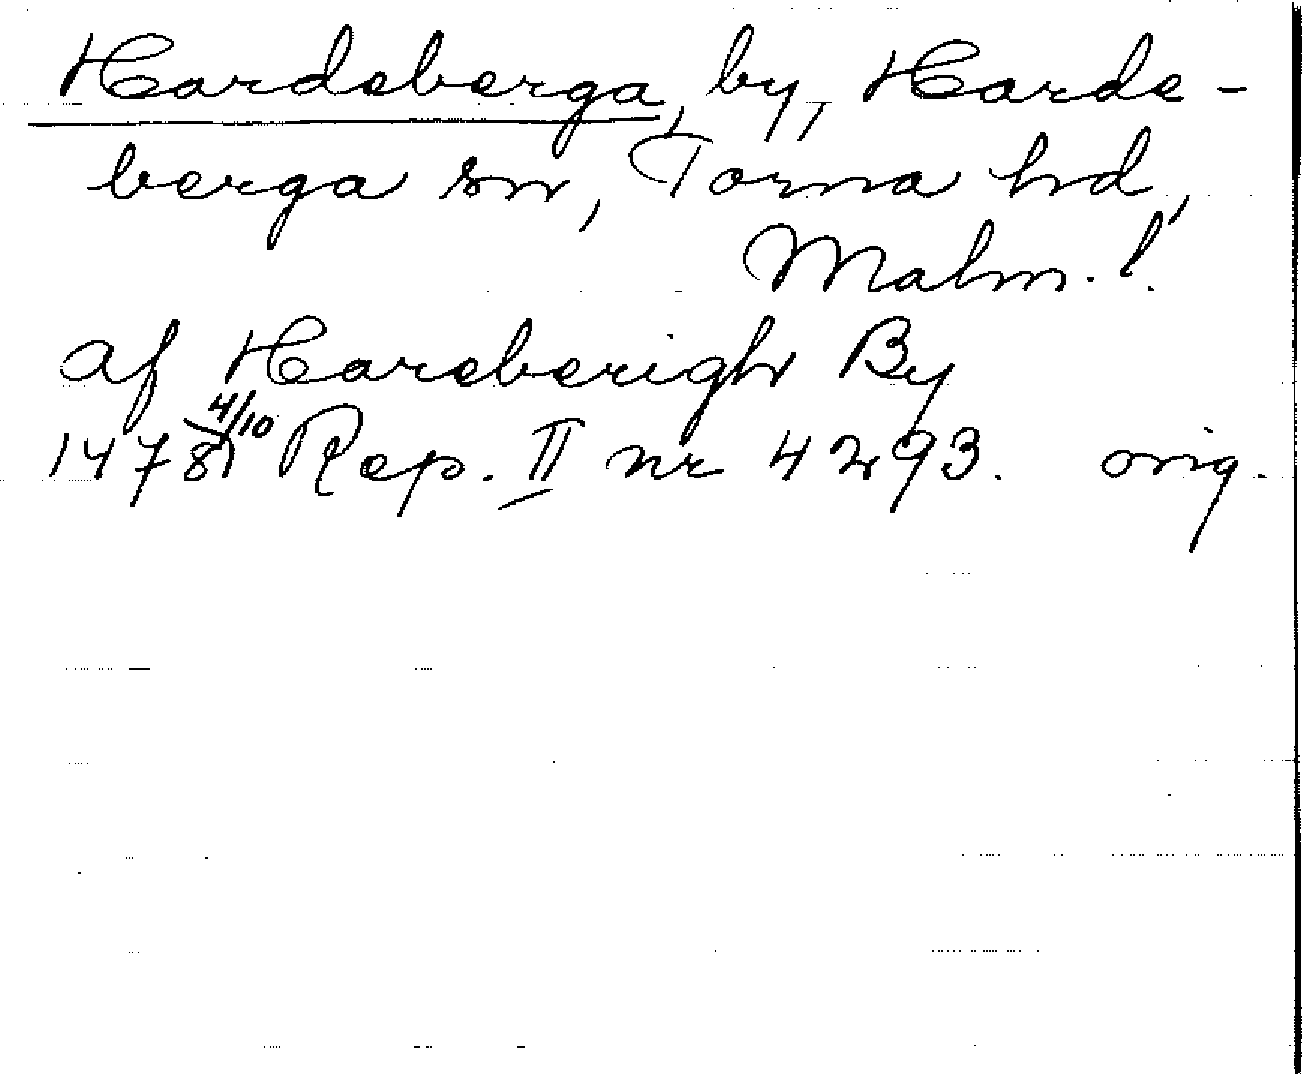 Hardeberga, by, Harde-
berga sn, Torna hd,
Malm. l.
af Hareberigh By
1478 4/10 Rep. II nr 4293. orig.